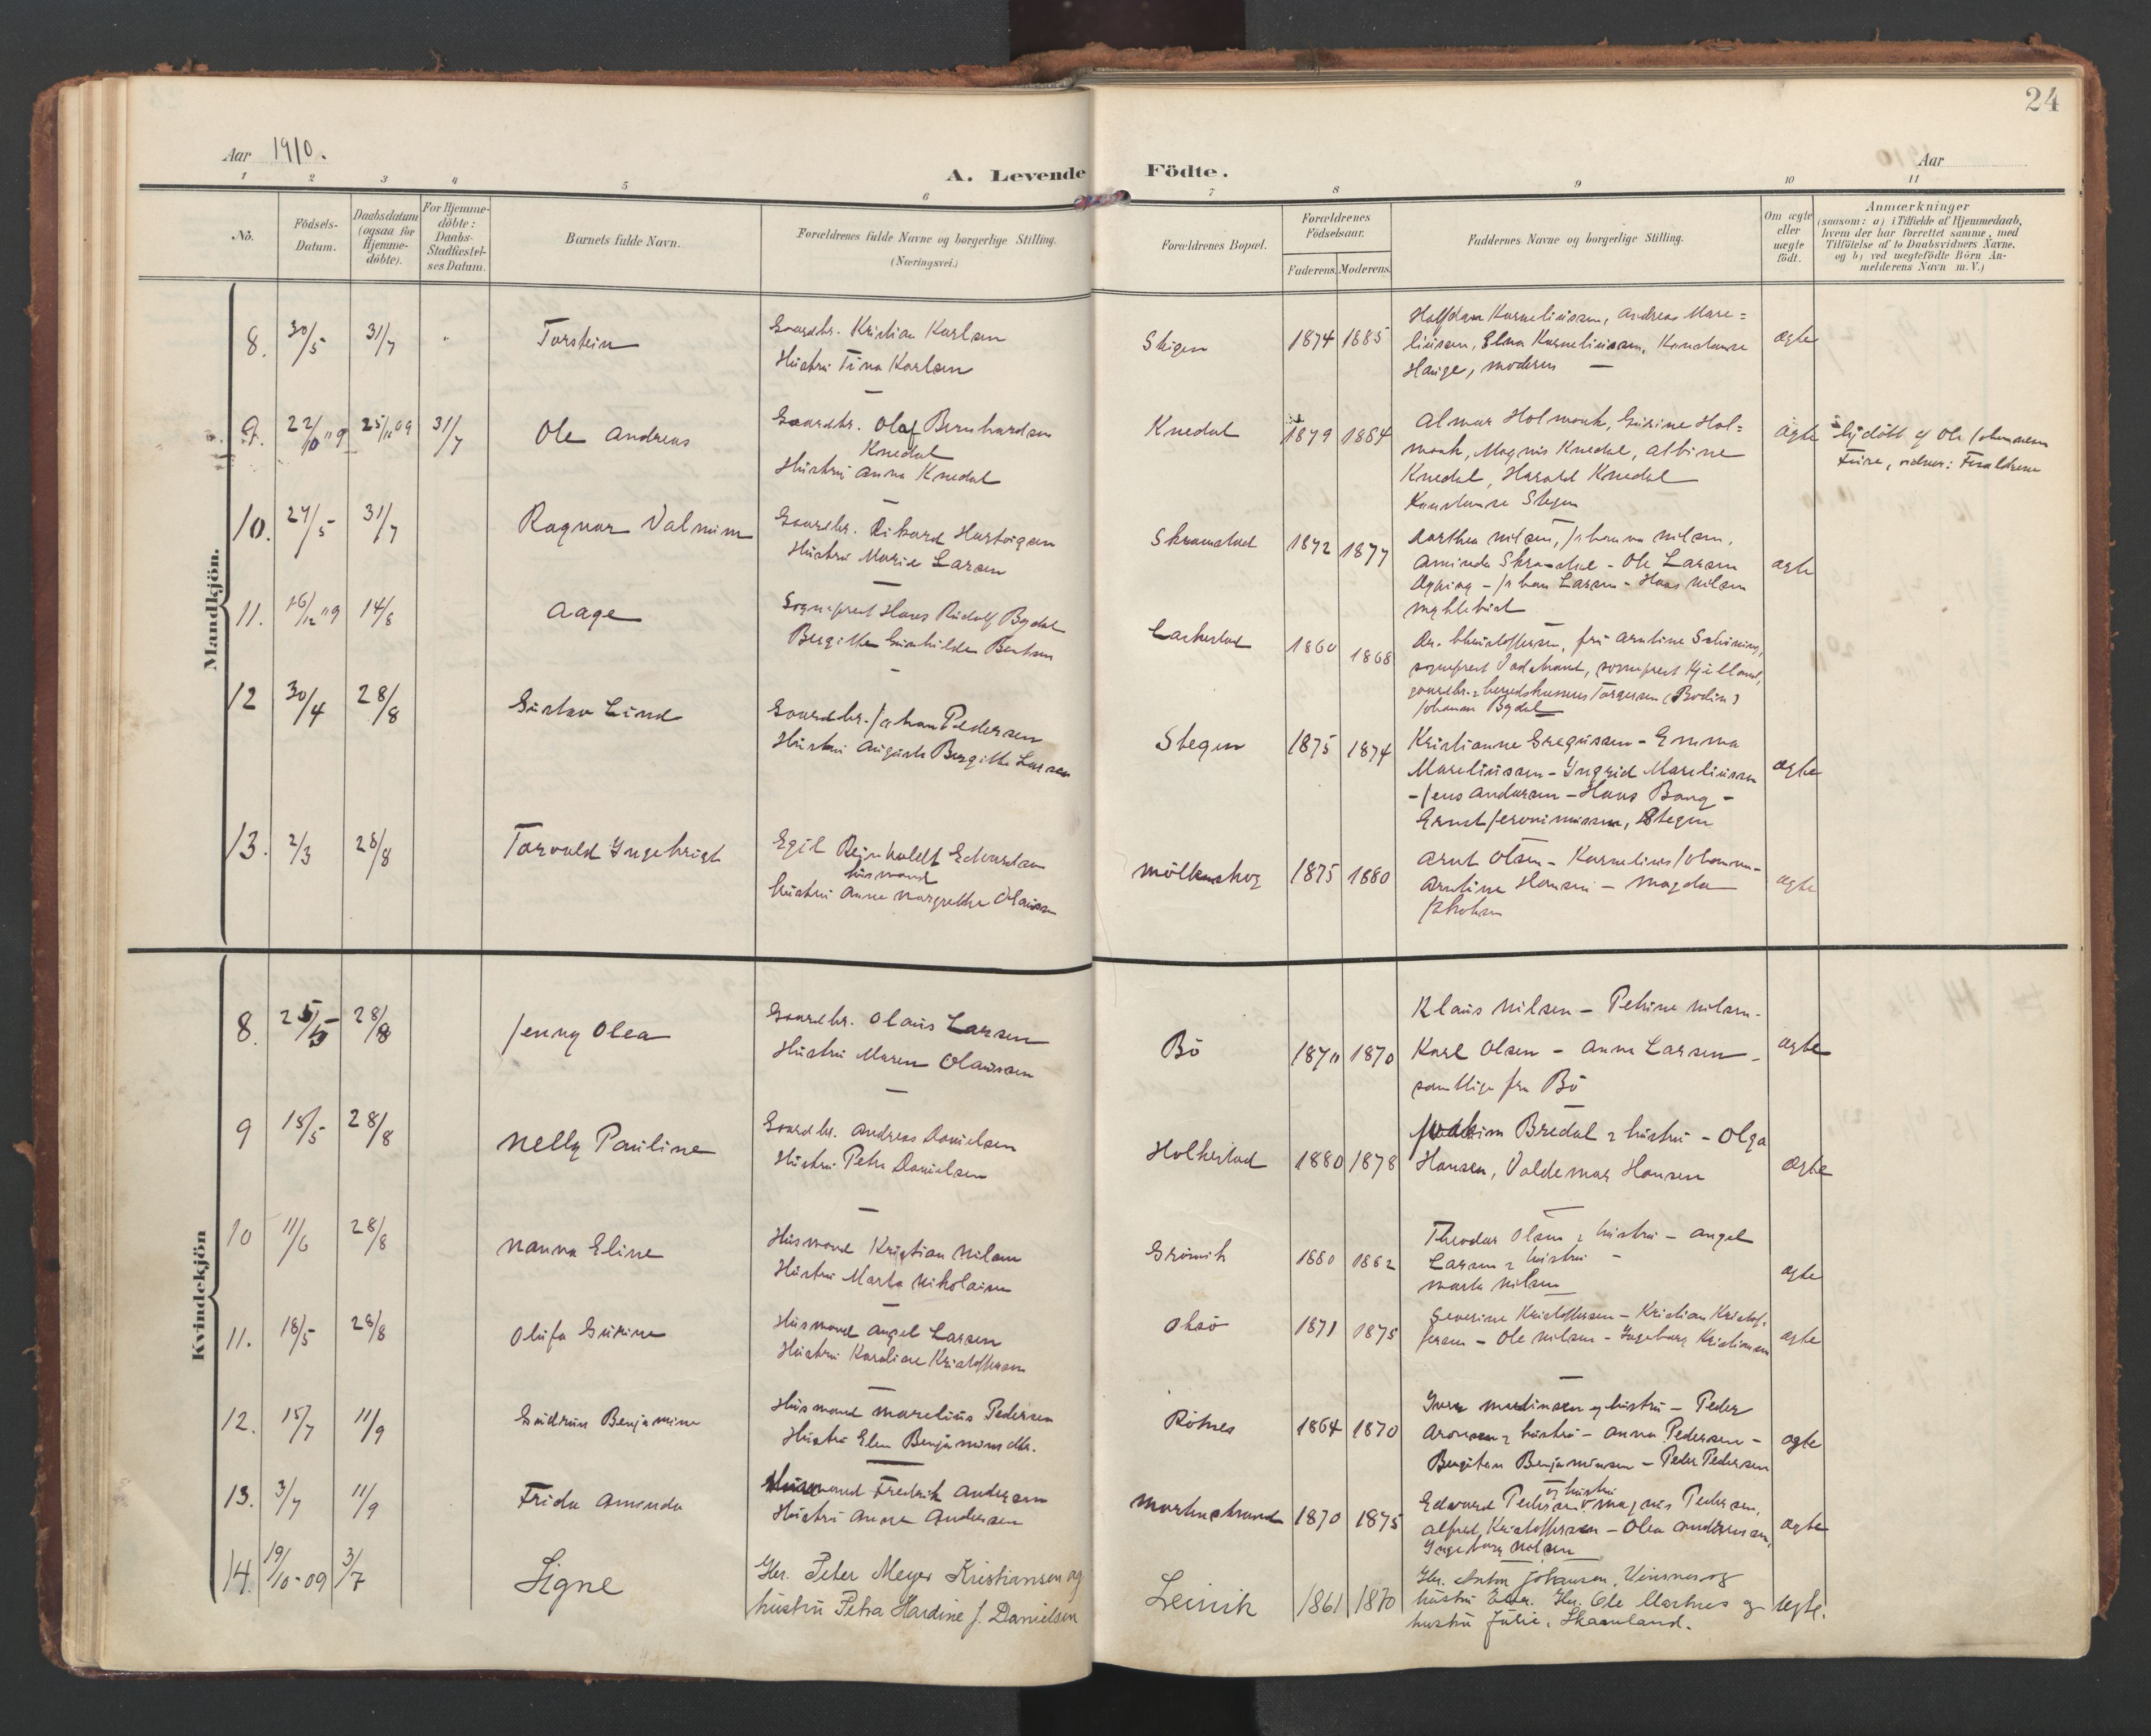 24
Aar 1910.
A. Levende Födte.
Aar
1 2 3 4 5 6 7 8 9 10 11
No.
Födsels-Datum.
Daabsdatum (ogsaa for Hjemme-döbte).
For Hjemme-döbte: Daabs-Stadfæstel-ses Datum.
Barnets fulde Navn.
Forældrenes fulde Navne og borgerlige Stilling.
(Næringsvei.)
Forældrenes Bopæl.
Forældrenes Födselsaar.
Faderens. Moderens.
Faddernes Navne og borgerlige Stilling.
Om ægte eller uægte födt.
Anmærkninger
(saasom: a) i Tilfælde af Hjemmedaab,
hvem der har forrettet samme, med
Tilföielse af to Daabsvidners Navne.
og b) ved uægtefödte Börn An-
melderens Navn m. V.)
Mandkjön.
8. 30/5 31/7 Torstein
Gaardbr. Kristian Karlsen
Hustru Tina Karlsen
Steigen 1874 1885
Halfdan Korneliussen, Andreas Mare=
liussen, Elna Korneliussen, Konstanse
Hauge, moderen —
ægte
9. 22/10 09 25/11 09 31/7 Ole Andreas
Gaardbr. Olaf Bernhardsen
Knedal
Hustru Anna Knedal
Knedal 1879 1884
Almar Holmvak, Gurine Hol=
mvak, Magnus Knedal, Albine
Knedal, Harald Knedal
Konstanse Stegen
ægte
hjdöbt af Ole Johannesen
vidner: Forældrene
10. 27/5 31/7 Ragnar Valmin
Gaardbr. Rikard Hartvigsen
Hustru Marie Larsen
Skramstad 1872 1877
Dorthea Nilsen, Johanna Nilsen,
Aminda Skramstad - Ole Larsen
Johan Larsen - Hans Nilsen
ægte
11. 16/12 09 14/8 Aage
Sogneprest Hans Rudolf Bydal
Bergitte Gunhilde Bentsen
Laskestad 1860 1868
Dr. Christoffersen, fru Arntine Schöning,
sogneprest Vadstrand, sogneprest Kjelland,
Torgersen (Bodin)
Johanna Bydal
12 30/4 28/8 Gustav Lind
Gaardbr. Johan Pedersen
Hustru Augusta Bergitte Larsen
Stegen 1875 1874
Kristianne Gregussen - Emma
Mareliussen - Ingrid Mareliussen
- Jens Andersen - Hans Bang -
Ernst Jeronimussen, Stegen
ægte
13. 2/3 28/8 Torvald Ingebrigt
Egil Reinholdt Edvardsen
husmand
hustru Anne Margrethe Olaussen
Mölkeskog 1875 1880
Arnt Olsen - Kornelius Johannes-
Arntine Hansen - Magda
Jakobsen
ægte
Kvindekjön
8. 25/5 28/8 Jenny Olea
Gaardbr. Olaus Larsen
Hustru Maren Olaussen
Bö 1870 1870
Klaus Nilsen - Petrine Nilsen -
Karl Olsen - Anna Larsen -
samtlige fra Bö
ægte
9 15/5 28/8 Nelly Pauline
Gaardbr. Andreas Danielsen
Hustru Petra Danielsen
Holkestad 1880 1878
Joakim Bredal & hustru - Olga
Hansen, Valdemar Hansen
ægte
10 11/6 28/8 Nanna Eline
Husmand Kristian Nilsen
Hustru Marta Nikolaisen
Grönvik 1880 1882
Theodor Olsen & hustru - Angel
Larsen & hustru -
Marta Nilsen
ægte
11. 18/5 28/8 Olufa Gurine
Husmand Angel Larsen
Hustru Karoline Kristoffersen
Oksö 1871 1875
Severine Kristoffersen - Kristian Kristof-
fersen - Ole Nilsen - Ingeborg Kristiansen
ægte
12. 15/7 11/9 Gudrun Benjamine
Husmand Marelius Pedersen
Hustru Elen Benjaminsdtr.
Rötnes 1864 1870
Iver Martinsen og hustru - Peder
Aronsen & hustru - Anna Pedersen -
Bergitha Benjaminsen - Peder Pedersen
ægte
13. 3/7 11/9 Frida Aminda
Husmand Fredrik Andersen
Hustru Anna Andersen
Markusstrand 1870 1875
og hustru
Edvard Pedersen Magnus Pedersen,
Alfred Kristoffersen - Olea Andreassen,
Ingeborg Nilsen
ægte
14. 19/10-09 3/7 Signe
Gbr. Peter Meyer Kristiansen og
hustru Petra Hardine f. Danielsen
Leivik 1861 1870
Gbr. Anton Johansen, Vinsnes og
hustru Gbr. Ole Martnes og
hustru Julie, Skaanland.
ægte.